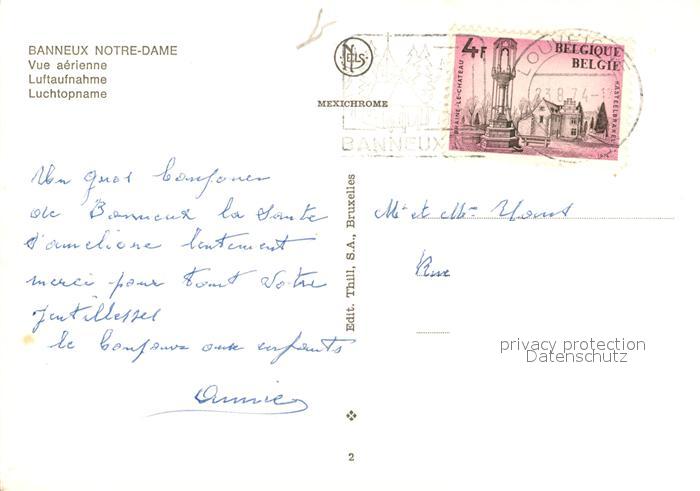 BANNEUX NOTRE-DAME
Vue aérienne
Luftaufnahme
Luchtopname
NELS
MEXICHROME
BANNEUX
4F
BELGIQUE
BELGIE
BRAINE-LE-CHATEAU
KASTEELBRAKEL
1974
23.8.74
Un gros bonjour
de Banneux la Santé
s'améliore lentement
merci pour tout votre
gentillesses
le bonjour aux enfants
Annie
Edit. Thill, S.A., Bruxelles
Mr et Me
Rue
privacy protection
Datenschutz
2